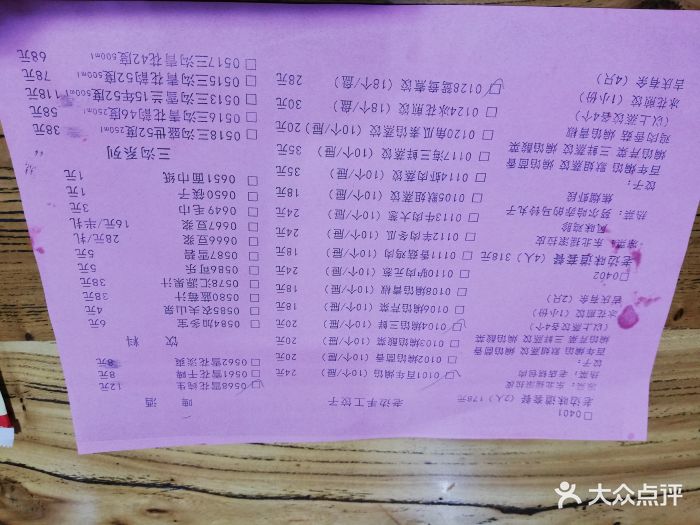 □0401
老边味道套餐（2人）178元
凉菜：东北摇滚拉皮
热菜：老店锅包肉
饺子：
百年煸馅 煸馅茴香
煸馅三鲜蒸饺 煸馅酸菜
（以上蒸饺各4个）
冰花煎饺（1小份）
吉庆有余（2只）
□0402
老边味道套餐（4人）318元
凉菜：东北摇滚拉皮
风味鸡胗
热菜：努尔哈赤的马铃丸子
焦熘虾段
饺子：
百年煸馅 献姐蒸饺 煸馅茴香
煸馅芹菜 三鲜蒸饺 煸馅酸菜
鸡肉香菇 煸馅青椒
（以上蒸饺各4个）
冰花煎饺（1小份）
吉庆有余（4只）
老边手工饺子
□0101百年煸馅（10个/屉） 24元
□0102煸馅茴香（10个/屉） 20元
□0103煸馅酸菜（10个/屉） 20元
□0104煸馅三鲜（10个/屉） 20元
□0105煸馅芹菜（10个/屉） 18元
□0106煸馅青椒（10个/屉） 18元
□0110驴肉元葱（10个/屉） 24元
□0111香菇鸡肉（10个/屉） 18元
□0112羊肉冬瓜（10个/屉） 24元
□0113牛肉大葱（10个/屉） 24元
□0105献姐蒸饺（10个/屉） 18元
□0114虾肉蒸饺（10个/屉） 35元
□0117海三鲜蒸饺（10个/屉）35元
□0120角瓜素馅蒸饺（10个/屉）20元
□0124冰花煎饺（18个/盘） 30元
□0128鸳鸯煮饺（18个/盘） 28元
啤 酒
□0568雪花纯生 12元
□0561雪花干啤 8元
□0562雪花淡爽 8元
饮 料
□0584加多宝 6元
□0585农夫山泉 4元
□0580蓝莓汁 38元
□0578汇源果汁 38元
□0586可乐 5元
□0587雪碧 5元
□0666豆浆 28元/扎
□0667豆浆 16元/半扎
□0649毛巾 3元
□0650筷子 1元
□0651面巾纸 1元
三沟系列
□0518三沟盛世52度250ml 38元
□0516三沟青花韵46度250ml 58元
□0513三沟雪兰15年52度500ml 118元
□0515三沟青花韵52度500ml 78元
□0517三沟青花42度500ml 68元
大众点评